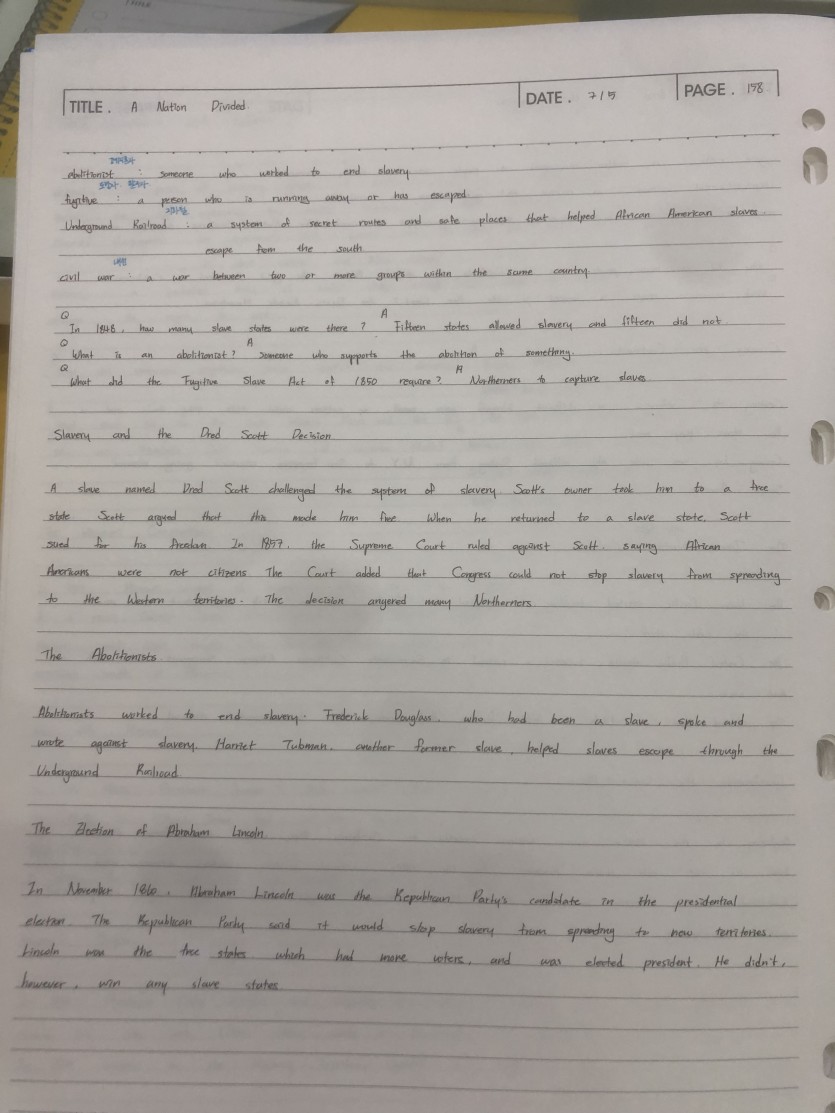 TITLE. A Nation Divided. DATE. 7/5 PAGE. 158.
폐지론자
abolitionist : someone who worked to end slavery
도망자
fugitive : a person who is running away or has escaped
Underground Railroad : a system of secret routes and safe places that helped African American slaves
escape from the south
내전
civil war : a war between two or more groups within the same country
Q In 1848, how many slave states were there? A Fifteen states allowed slavery and fifteen did not
Q What is an abolitionist? A Someone who supports the abolition of something.
Q What did the Fugitive Slave Act of 1850 require? A Northerners to capture slaves
Slavery and the Dred Scott Decision
A slave named Dred Scott challenged the system of slavery. Scott's owner took him to a free
state Scott argued that this made him free When he returned to a slave state, Scott
sued for his freedom In 1857, the Supreme Court ruled against Scott, saying African
Americans were not citizens The Court added that Congress could not stop slavery from spreading
to the Western territories. The decision angered many Northerners
The Abolitionists
Abolitionists worked to end slavery. Frederick Douglass, who had been a slave, spoke and
wrote against slavery. Harriet Tubman, another former slave, helped slaves escape through the
Underground Railroad
The Election of Abraham Lincoln
In November 1860, Abraham Lincoln was the Republican Party's candidate in the presidential
election. The Republican Party said it would stop slavery from spreading to new territories.
Lincoln won the free states which had more voters, and was elected president. He didn't,
however, win any slave states